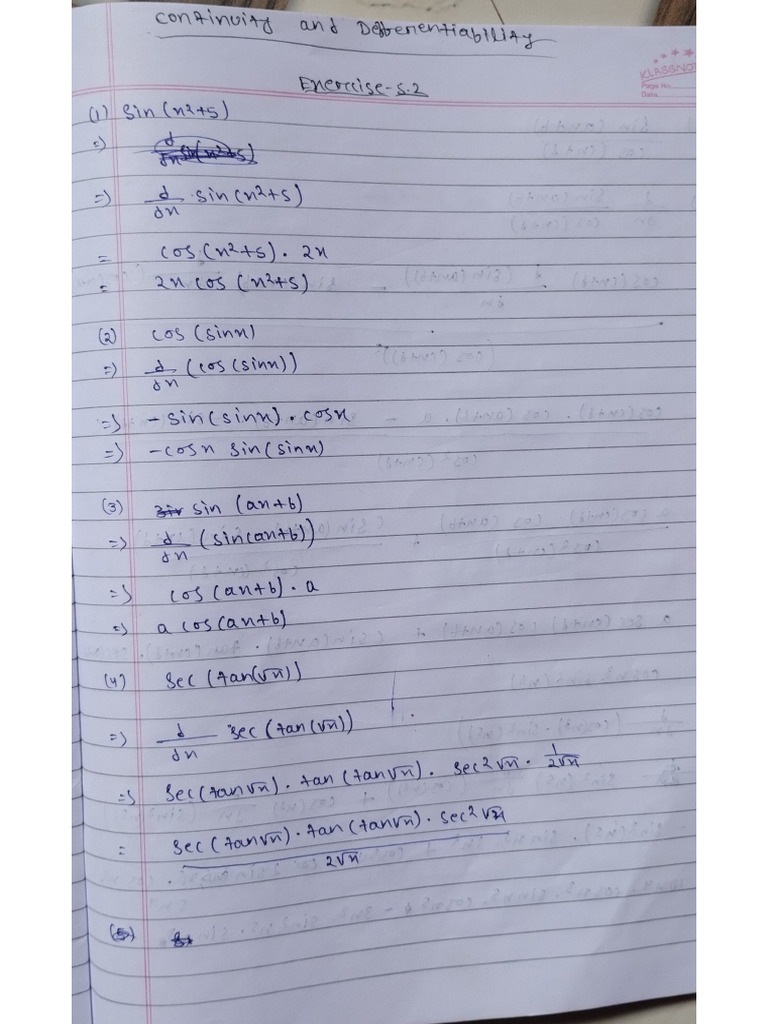 Continuity and Defferentiability
Exercise-5.2
KLASSNOTE
Page No.
Date
(1) sin(x²+5)
=) d/dx sin(x²+5)
=) d/dx . sin(x²+5)
= cos(x²+5) . 2x
= 2x cos (x²+5)
(2) cos (sinx)
=) d/dx (cos(sinx))
=) -sin(sinx) . cosx
=) -cosx sin(sinx)
(3) sin (ax+b)
=) d/dx (sin(ax+b))
=) cos(ax+b) . a
=) a cos(ax+b)
(4) sec(tan(√x))
=) d/dx sec(tan(√x))
=) sec(tan√x) . tan(tan√x) . sec²√x . 1/2√x
= sec(tan√x) . tan(tan√x) . sec²√x / 2√x
(5)